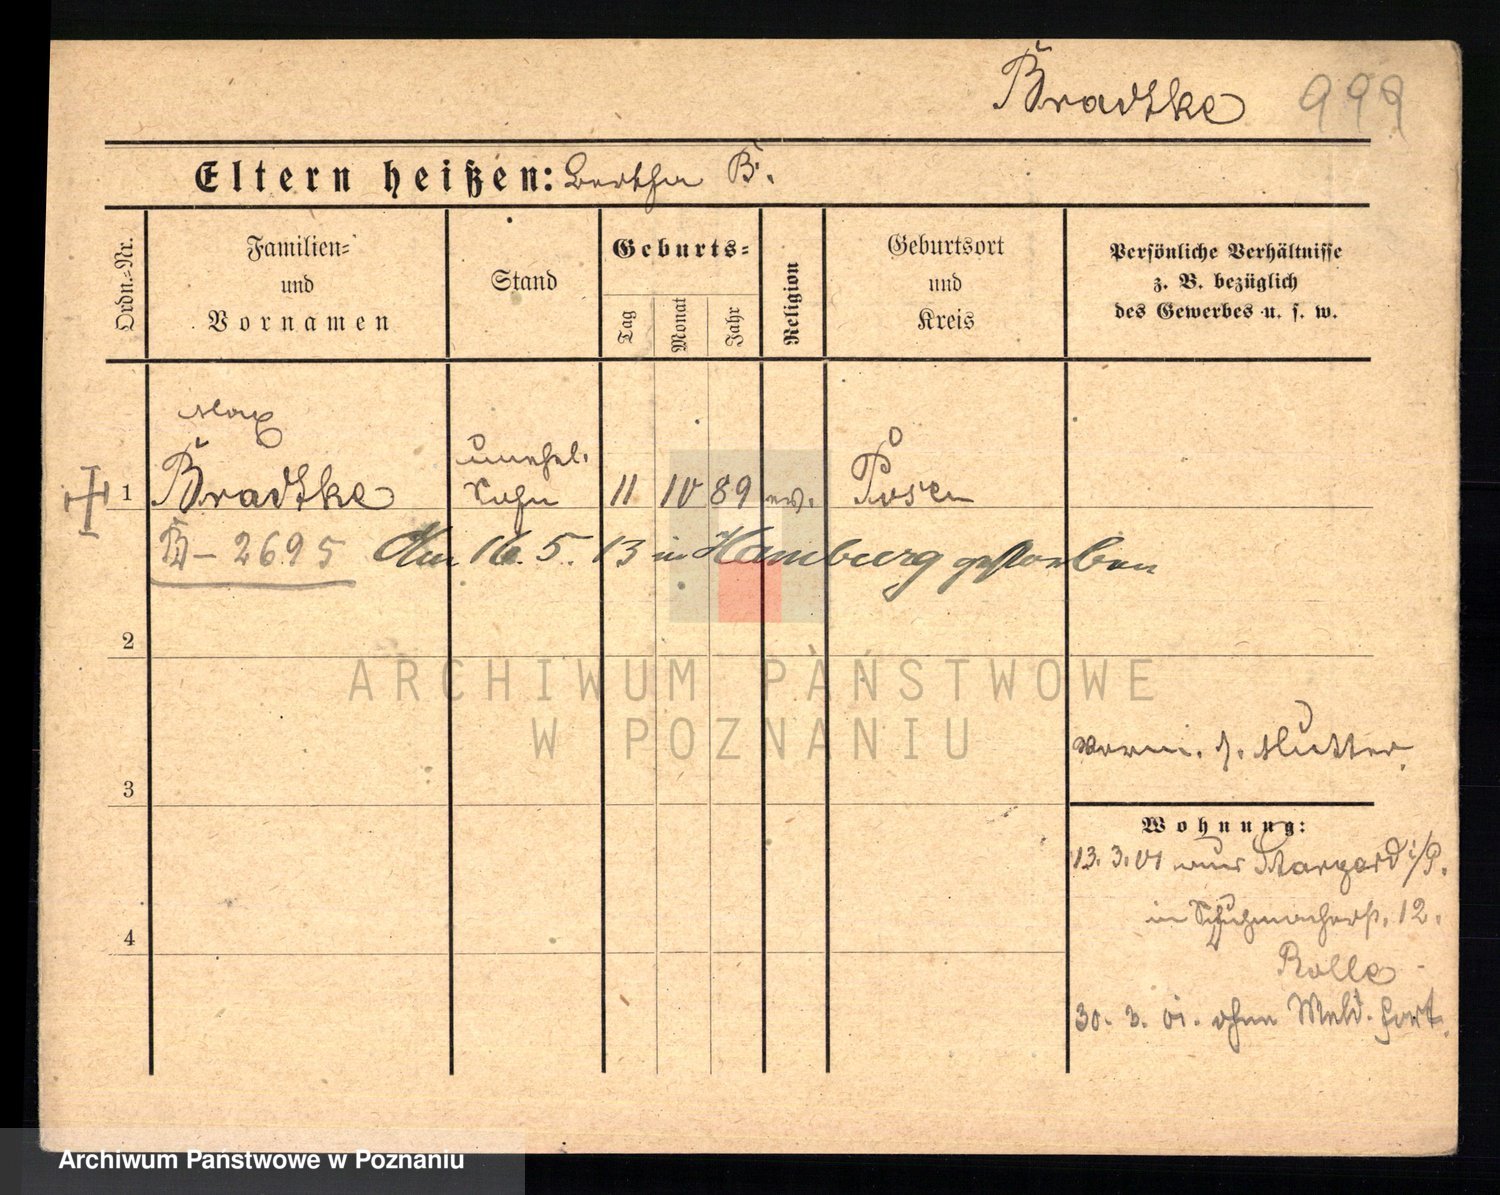 Bradtke 999
Eltern heißen: Bertha B.
Ordn.-Nr.
Familien-
und
Vornamen
Stand
Geburts-
Tag
Monat
Jahr
Religion
Geburtsort
und
Kreis
Persönliche Verhältnisse
z. B. bezüglich
des Gewerbes u. s. w.
Max
1 Bradtke unehel. Sohn 11 10 89 ev. Posen
B- 2695 Am 16. 5. 13 in Hamburg gestorben
2
ARCHIWUM PAŃSTWOWE
W POZNANIU
s. Mutter.
3
Wohnung:
13. 3. 01 aus Stargard i/P.
in Schuhmacherst. 12.
Rolle
4
30. 3. 01. ohne Meld. fort.
Archiwum Państwowe w Poznaniu